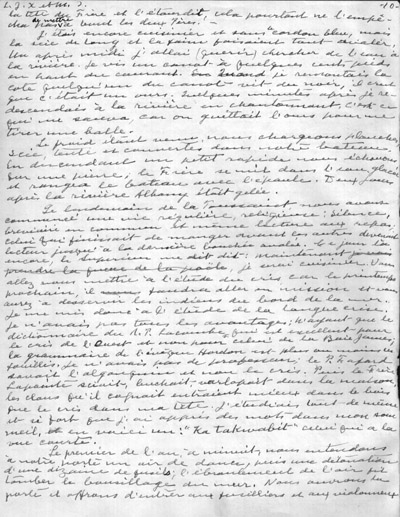 L.J.X. et M.J. 10.
la tête du Frère et l'étourdit, cela pourtant ne l'empê-
cha pas de mettre les deux fers.
J'étais encore cuisinier et sans "cordon bleu", mais
la scie de long et la faim faisaient tout avaler.
Un après-midi j'allai chercher de l'eau à
la rivière. Je vis un canot à quelques cents pieds
en haut du courant. Quand je remontais la
côte quelqu'un du canot vit du noir, il crut
que c'était un ours. Quelques minutes après je re-
descendais à la rivière en chantonnant, c'est ce
qui me sauva, car on guettait l'ours pour me
tirer une balle.
Le froid étant venu, nous chargeons planches,
scie, tente et couvertes dans notre bateau.
En descendant un petit rapide nous échouons
sur une pierre, le Frère se mit dans l'eau glacée
et rangea le bateau avec l'épaule. Deux jours
après la rivière Albany était gelée.
Le lendemain de la Toussaint nous avons
commencé une vie régulière, religieuse: silence,
bréviaire en commun et même lecture aux repas.
celui qui finissait de manger avant les autres devenait
lecteur jusqu'à la dernière bouchée avalée. Ce jour-là
encore, le Supérieur me dit: maintenant
prendre la je suis cuisinier. Vous
allez vous mettre à l'étude du cris car le printemps
prochain, il faudra aller en mission et vous
aurez à desservir les indiens du bord de la mer.
Je me mis donc à l'étude de la langue crise.
Je n'avais pas tous les avantages; n'ayant que le
dictionnaire du R.P. Lacombe qui est excellent pour
le cris de l'Ouest et non pour celui de la Baie James,
la grammaire de l'évêque Horden est plus ou moins
je n'avais pas de professeur, le P. Fafard
savait l'algonquin et non le cris. Puis le Frère
Lapointe sciait, buchait, varlopait dans la maison
les clous qu'il cognait entraient mieux dans le bois
que le cris dans ma tête. J'étudiais tout de même
et si fort que j'ai appris des mots dans mon som-
meil, et en voici un: "Ka takwabit" celui qui a la
vue courte.
Le premier de l'an, à minuit, nous entendons
à notre porte un air de dance, puis une détonation
d'une dizaine de fusils; l'ébranlement de l'air fit
tomber le bousillage du mur. Nous ouvrons la
porte et offrons d'entrer aux fusilliers et aux violonneux